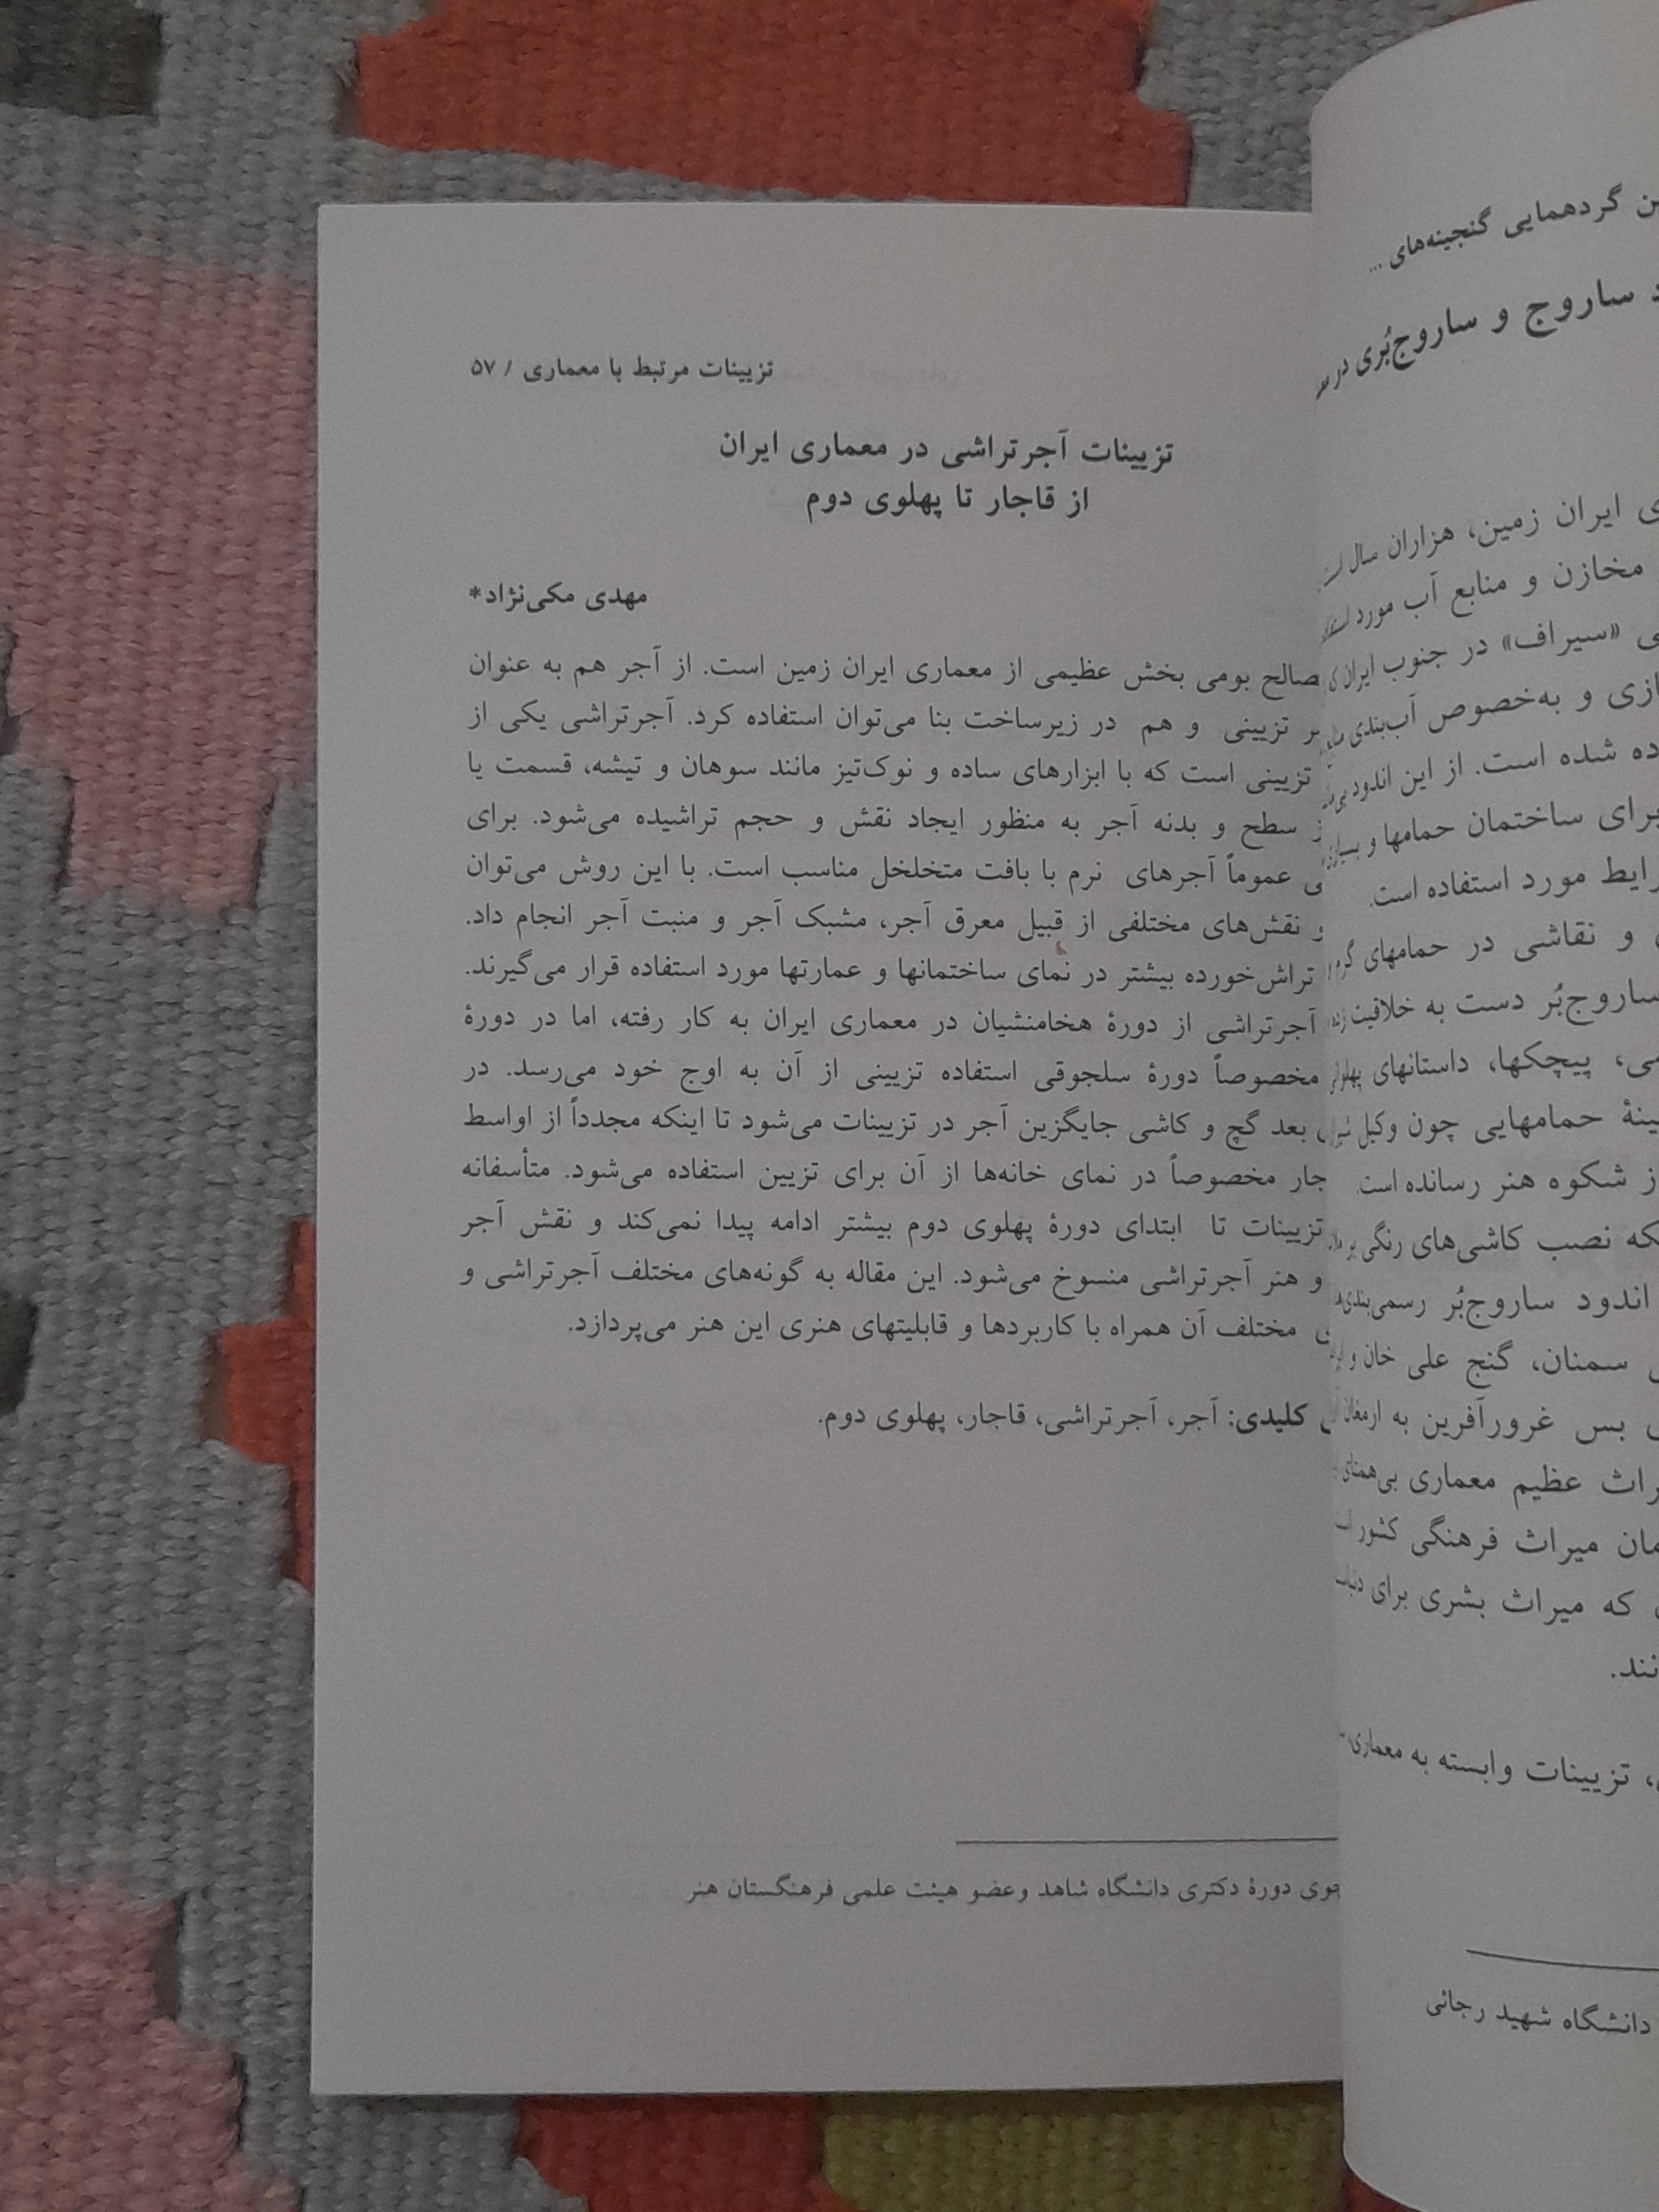 تزیینات مرتبط با معماری / ۵۷
تزیینات آجرتراشی در معماری ایران
از قاجار تا پهلوی دوم
مهدی مکی‌نژاد*
بومی بخش عظیمی از معماری ایران زمین است. از آجر هم به عنوان
تزیینی و هم در زیرساخت بنا می‌توان استفاده کرد. آجرتراشی یکی از
تزیینی است که با ابزارهای ساده و نوک‌تیز مانند سوهان و تیشه، قسمت یا
سطح و بدنه آجر به منظور ایجاد نقش و حجم تراشیده می‌شود. برای
عموماً آجرهای نرم با بافت متخلخل مناسب است. با این روش می‌توان
و نقش‌های مختلفی از قبیل معرق آجر، مشبک آجر و منبت آجر انجام داد.
تراش‌خورده بیشتر در نمای ساختمانها و عمارتها مورد استفاده قرار می‌گیرند.
آجرتراشی از دورهٔ هخامنشیان در معماری ایران به کار رفته، اما در دورهٔ
مخصوصاً دورهٔ سلجوقی استفاده تزیینی از آن به اوج خود می‌رسد. در
بعد گچ و کاشی جایگزین آجر در تزیینات می‌شود تا اینکه مجدداً از اواسط
جار مخصوصاً در نمای خانه‌ها از آن برای تزیین استفاده می‌شود. متأسفانه
تزیینات تا ابتدای دورهٔ پهلوی دوم بیشتر ادامه پیدا نمی‌کند و نقش آجر
و هنر آجرتراشی منسوخ می‌شود. این مقاله به گونه‌های مختلف آجرتراشی و
مختلف آن همراه با کاربردها و قابلیتهای هنری این هنر می‌پردازد.
کلیدی: آجر، آجرتراشی، قاجار، پهلوی دوم.
جوی دورهٔ دکتری دانشگاه شاهد وعضو هیئت علمی فرهنگستان هنر
گردهمایی گنجینه‌های ...
ساروج و ساروج‌بُری در
ایران زمین، هزاران سال
مخازن و منابع آب مورد
«سیراف» در جنوب ایران
و به‌خصوص آب‌بندی
شده است. از این اندود
برای ساختمان حمامها و
مورد استفاده است.
و نقاشی در حمامهای گرم
ساروج‌بُر دست به خلاقیت
پیچکها، داستانهای
حمامهایی چون وکیل
شکوه هنر رسانده است.
نصب کاشی‌های رنگی بر
اندود ساروج‌بُر رسمی‌بندی
سمنان، گنج علی خان و
بس غرورآفرین به ارمغان
عظیم معماری بی‌همتای
میراث فرهنگی کشور
که میراث بشری برای
تزیینات وابسته به معماری
دانشگاه شهید رجائی